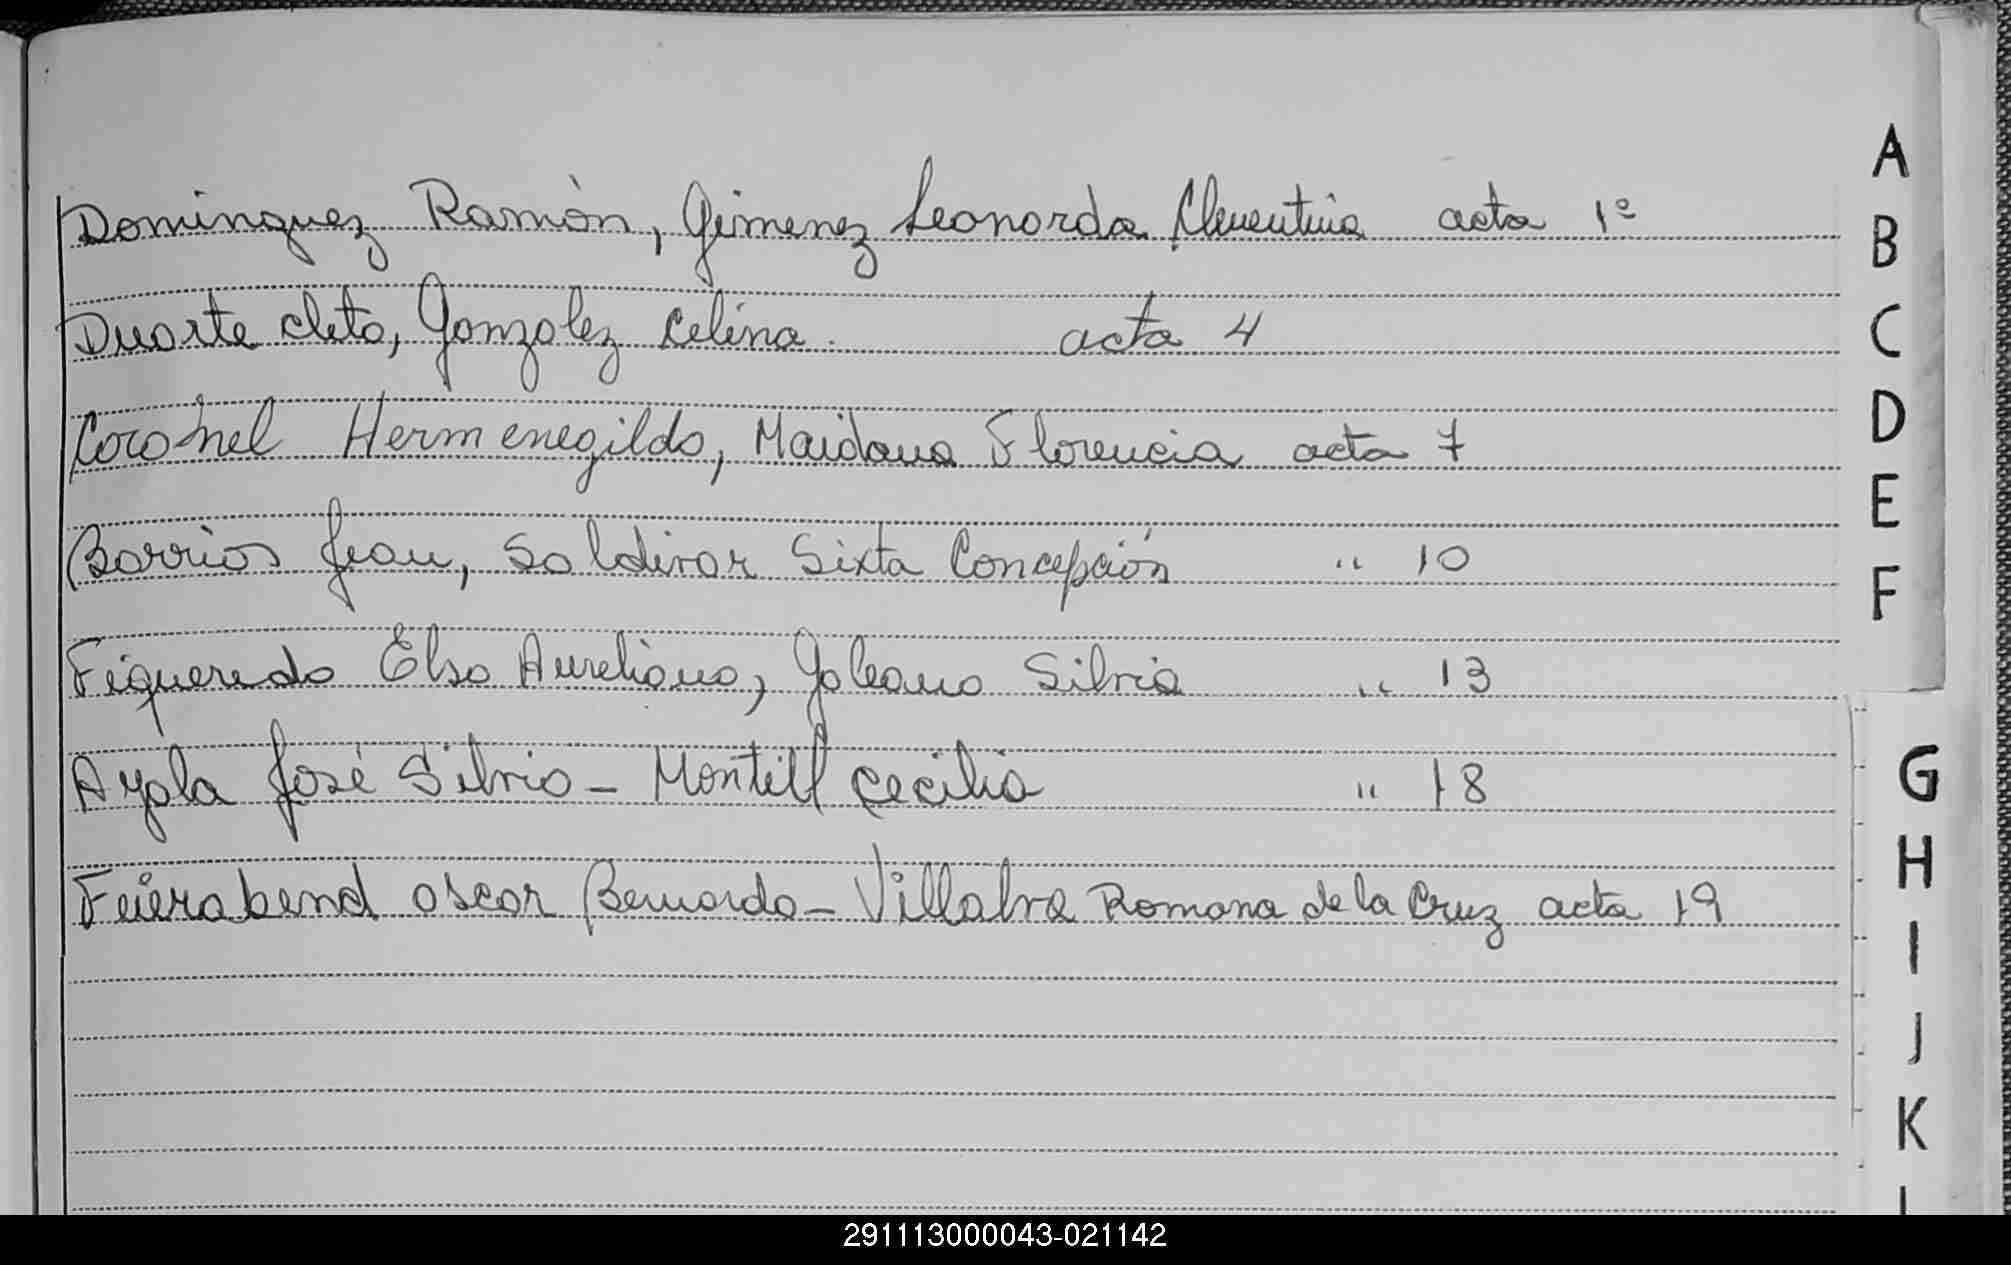 Dominguez Ramón, Gimenez Leonorda Clementina acta 1º
Duarte Cleto, Gonzalez Celina. acta 4
Coronel Hermenegildo, Maidana Florencia acta 7
Barrios Juan, Saldivar Sixta Concepción " 10
Figueredo Elso Aureliano, Galeano Silvia " 13
Ayala José Silvio - Montiel Cecilia " 18
Feierabend Oscar Bernardo - Villalva Romana de la Cruz acta 19
A
B
C
D
E
F
G
H
I
J
K
291113000043-021142